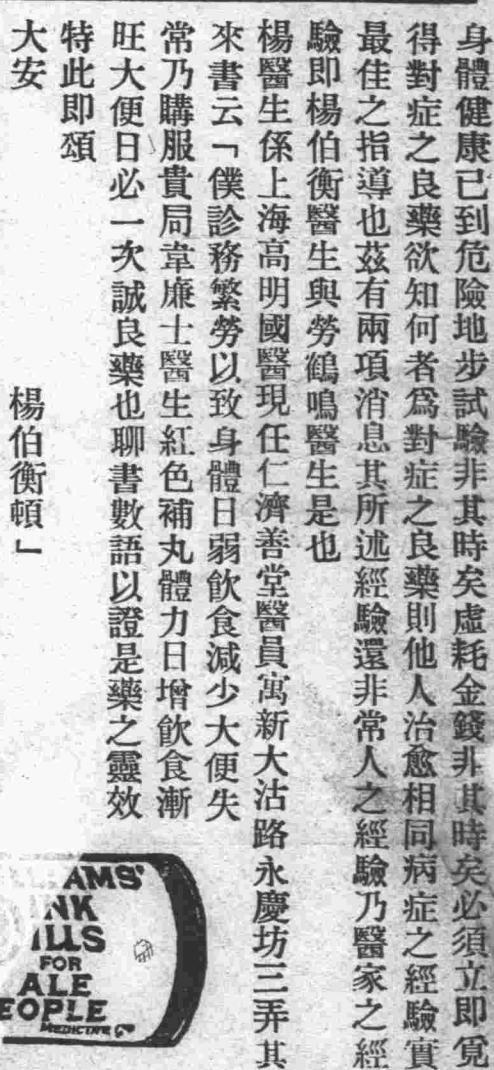 身體健康已到危險地步試驗非其時矣虛耗金錢非其時矣必須立即覓
得對症之良藥欲知何者爲對症之良藥則他人治愈相同病症之經驗實
最佳之指導也茲有兩項消息其所述經驗還非常人之經驗乃醫家之經
驗即楊伯衡醫生與勞鶴鳴醫生是也
楊醫生係上海高明國醫現任仁濟善堂醫員寓新大沽路永慶坊三弄其
來書云「僕診務繁勞以致身體日弱飲食減少大便失
常乃購服貴局韋廉士醫生紅色補丸體力日增飲食漸
旺大便日必一次誠良藥也聊書數語以證是藥之靈效
特此即頌
大安　楊伯衡頓」
AMS'
NK
ILLS
FOR
ALE
EOPLE
MEDICINE Co